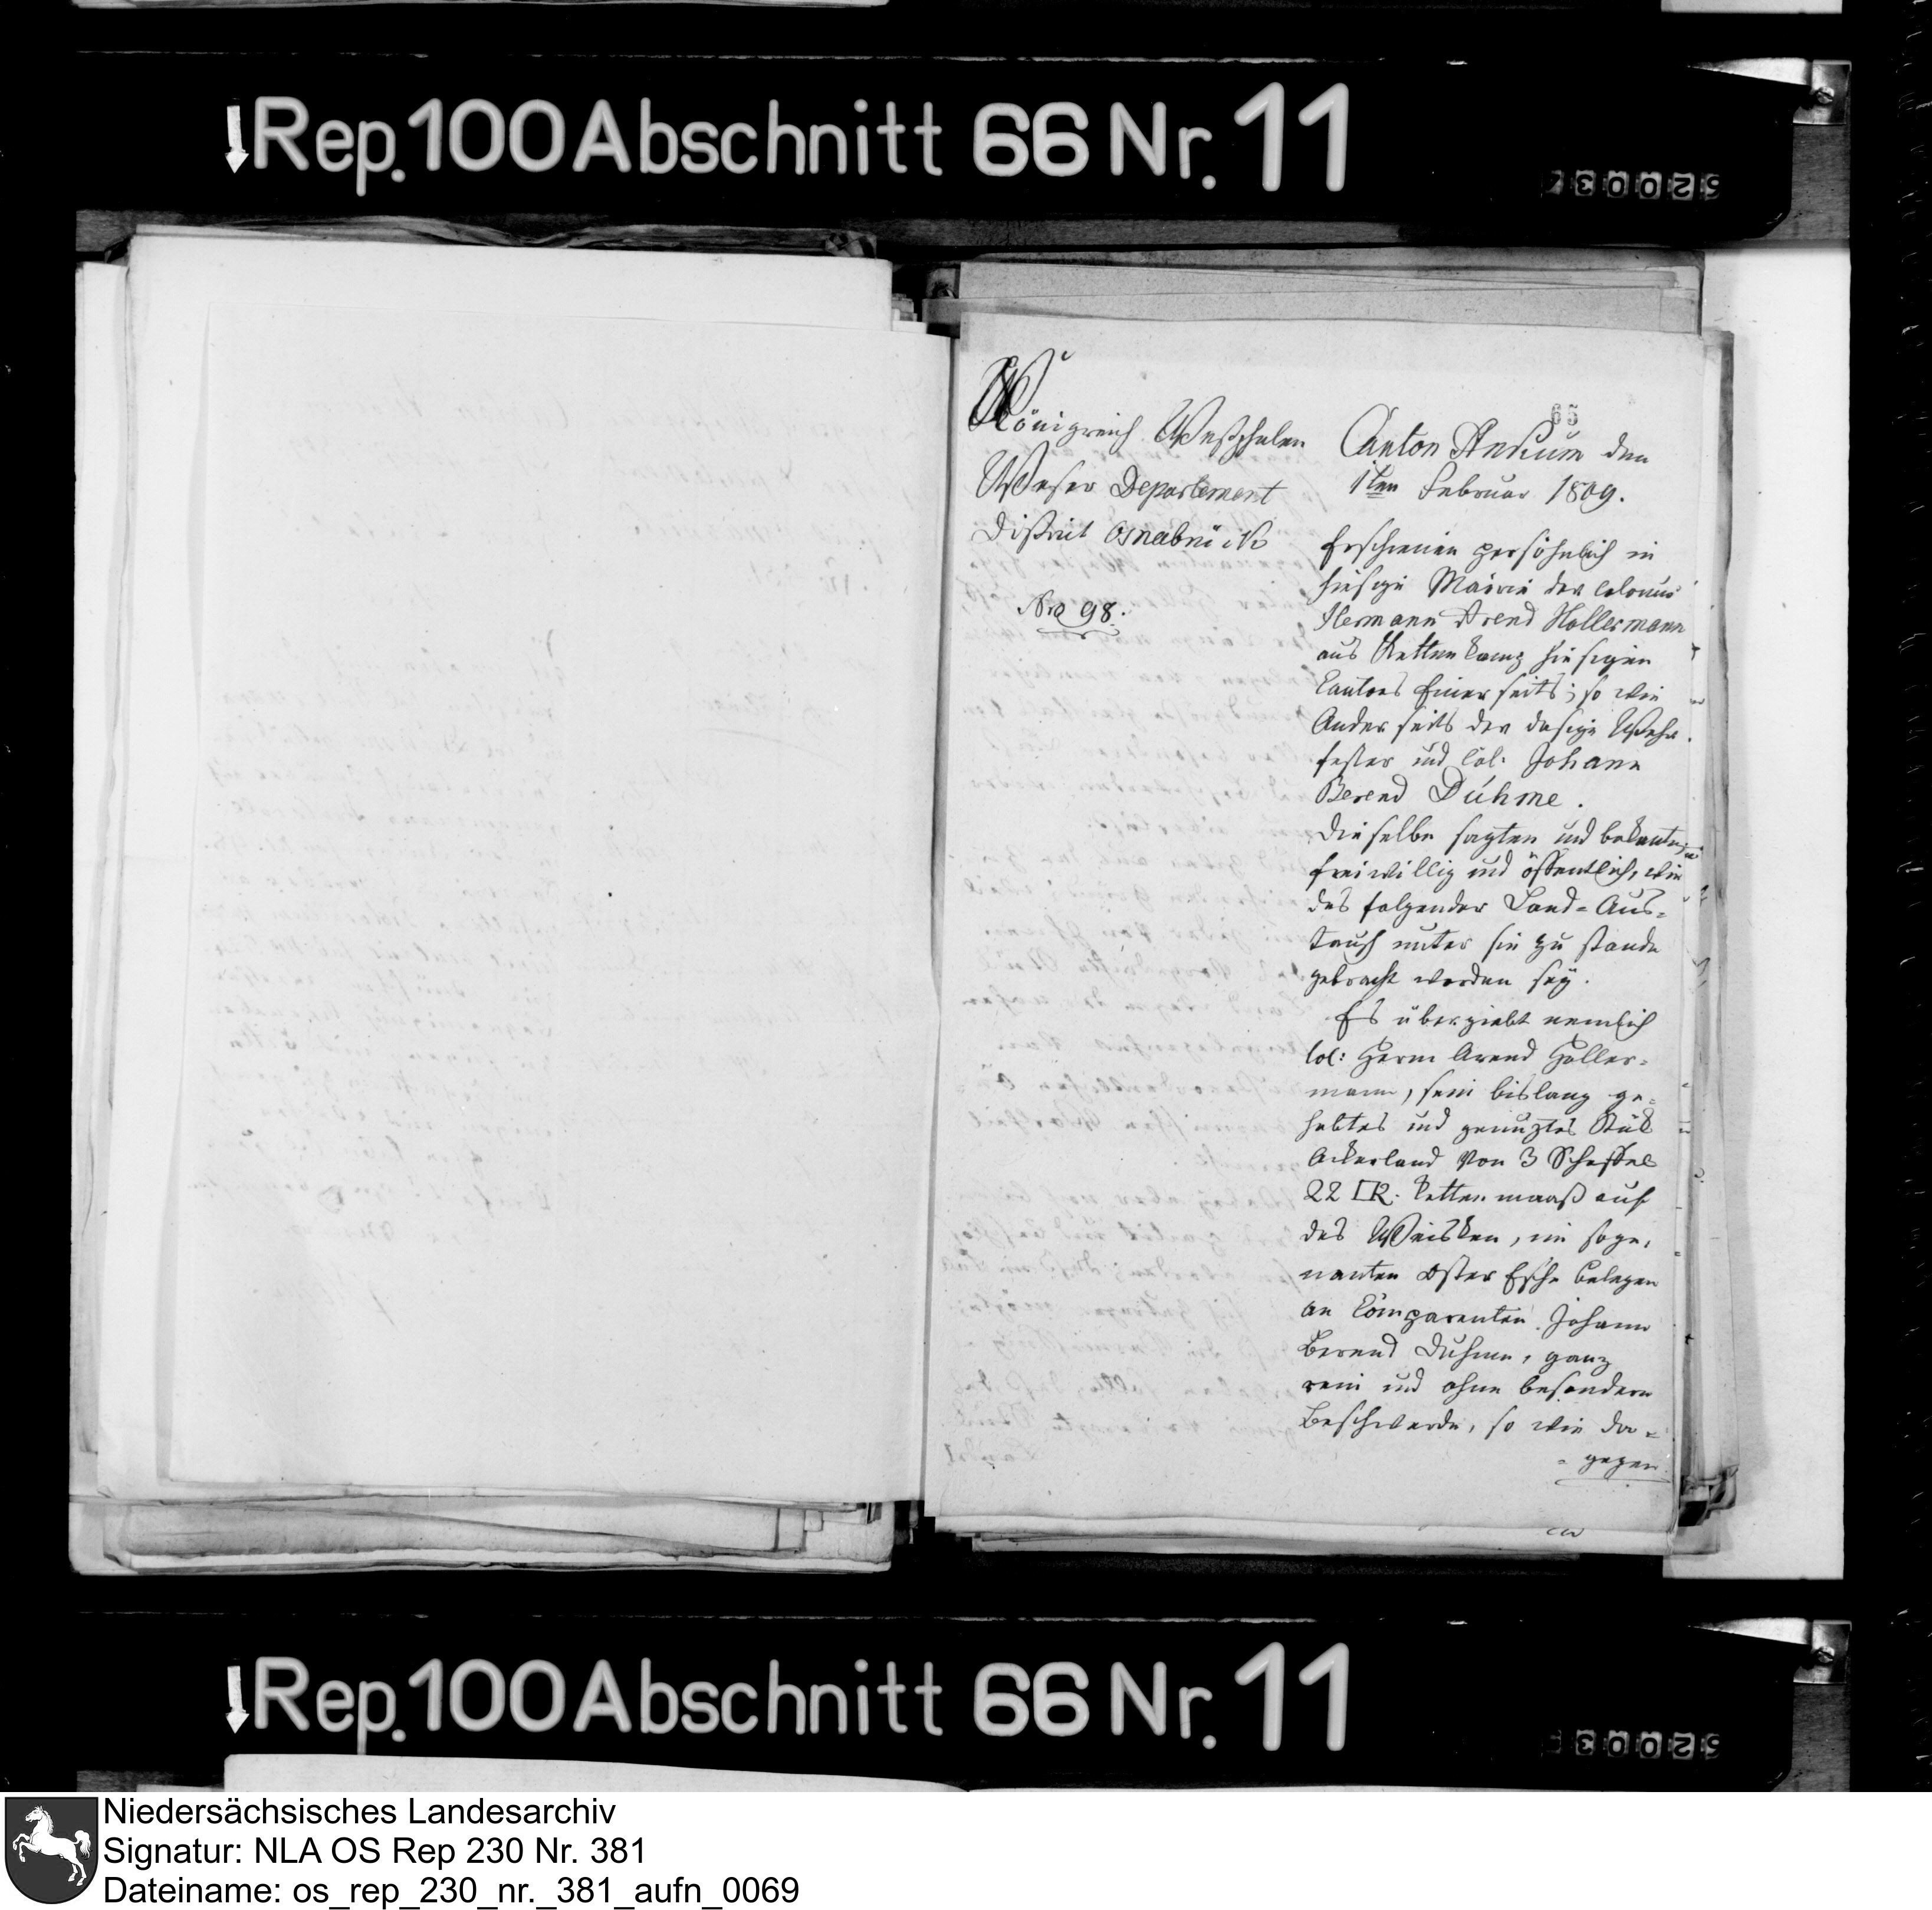 Rep. 100 Abschnitt 66 Nr. 11
65
Königreich Westphalen
Weser Departement
District Osnabrück
Nro 98.
Canton Ankum den
1ten Februar 1809.
Erschienen persöhnlich in
hiesige Mairie der Colonus
Hermann Arend Hollermann
aus Kettenkamp hiesigen
Cantons Einerseits; so wie
Anderseits der dasige Wehr-
fester und Col: Johann
Berend Dühme.
Dieselbe sagten und bekanten
freiwillig und öffentlich, wie
das folgender Land-Aus-
tausch unter sie zu stande
gebracht worden seÿ.
Es übergiebt nemlich
Col: Herm Arend Holler-
mann, sein bislang ge-
habtes und genuztes Stük
Ackerland von 3 Scheffel
22 □R. Kettenmaaß auf
des Weisken, im soge-
nanten Oster Esche belegen
an Comparenten Johann
Berend Duhme, ganz
rein und ohne besondern
Beschwerde, so wie da-
-gegen
Rep. 100 Abschnitt 66 Nr. 11
Niedersächsisches Landesarchiv
Signatur: NLA OS Rep 230 Nr. 381
Dateiname: os_rep_230_nr._381_aufn_0069